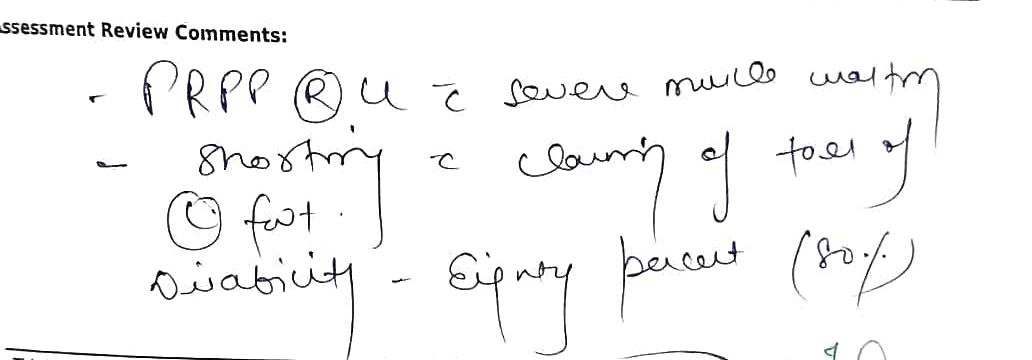 ssessment Review Comments:
- PRPP Ⓡ LL c̄ severe muscle wasting
- Shorting c̄ clawing of toes of
Ⓛ foot.
Disability - Eighty percent (80%)